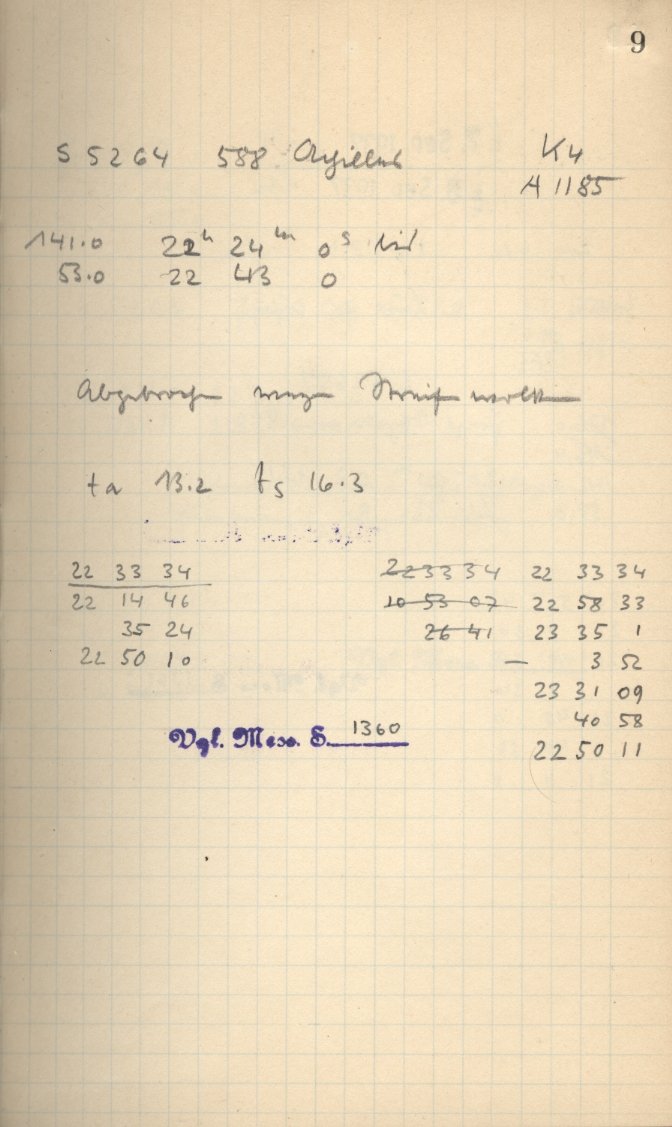 9
S 5264 588 Achilles K4
A 1185
141.0 22h 24m 0s bis
53.0 22 43 0
Abgebrochen wegen Streifenwolken
ta 13.2 ts 16.3
22 33 34 22 33 34 22 33 34
22 14 46 10 53 07 22 58 33
35 24 26 41 23 35 1
22 50 10 — 3 52
23 31 09
Vgl. Mess. S. 1360 40 58
22 50 11